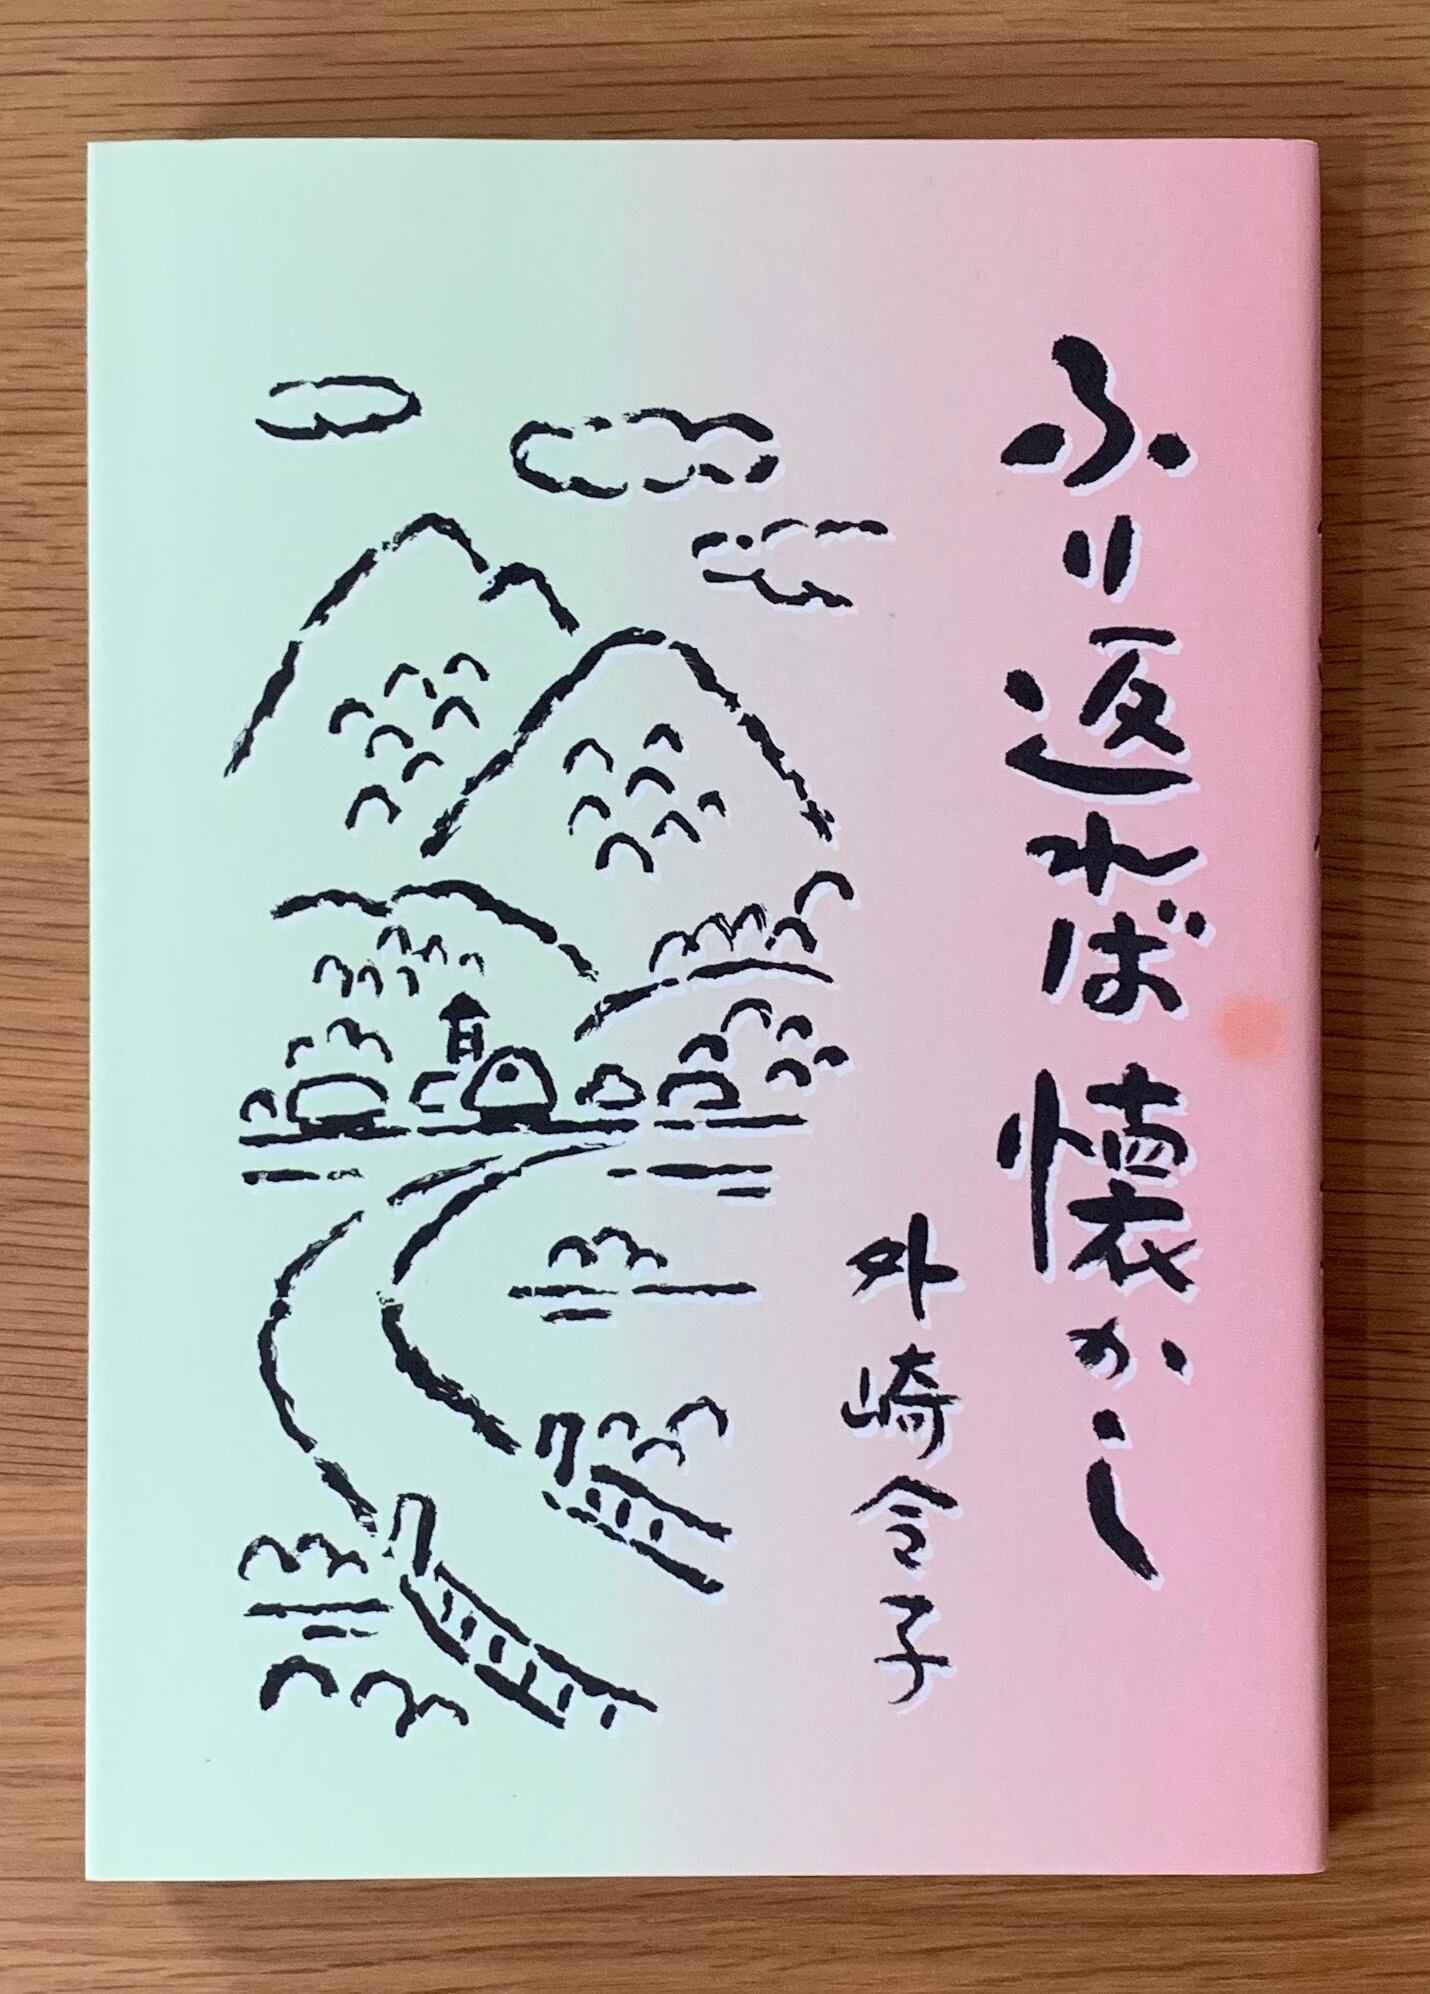 ふり返れば 懐かし
外崎令子